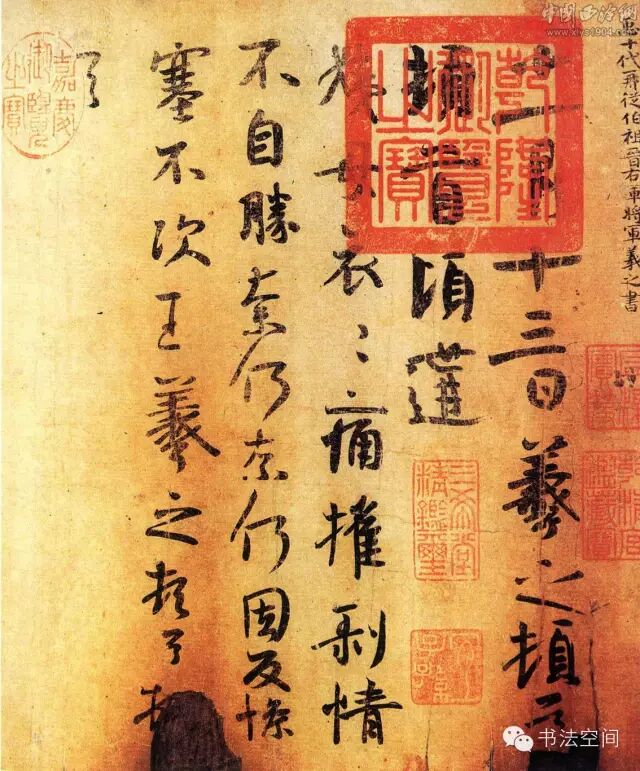 中国西泠网
www.xlys1904.com
十代再從伯祖晉右軍將軍羲之書
十一月十三日羲之頓首
頓首頃遘
姨母哀〻痛摧剝情
不自勝奈何奈何因反慘
塞不次王羲之頓首頓
首
乾隆御覽之寶
嘉慶御覽之寶
三希堂精鑑璽
宜子孫
书法空间